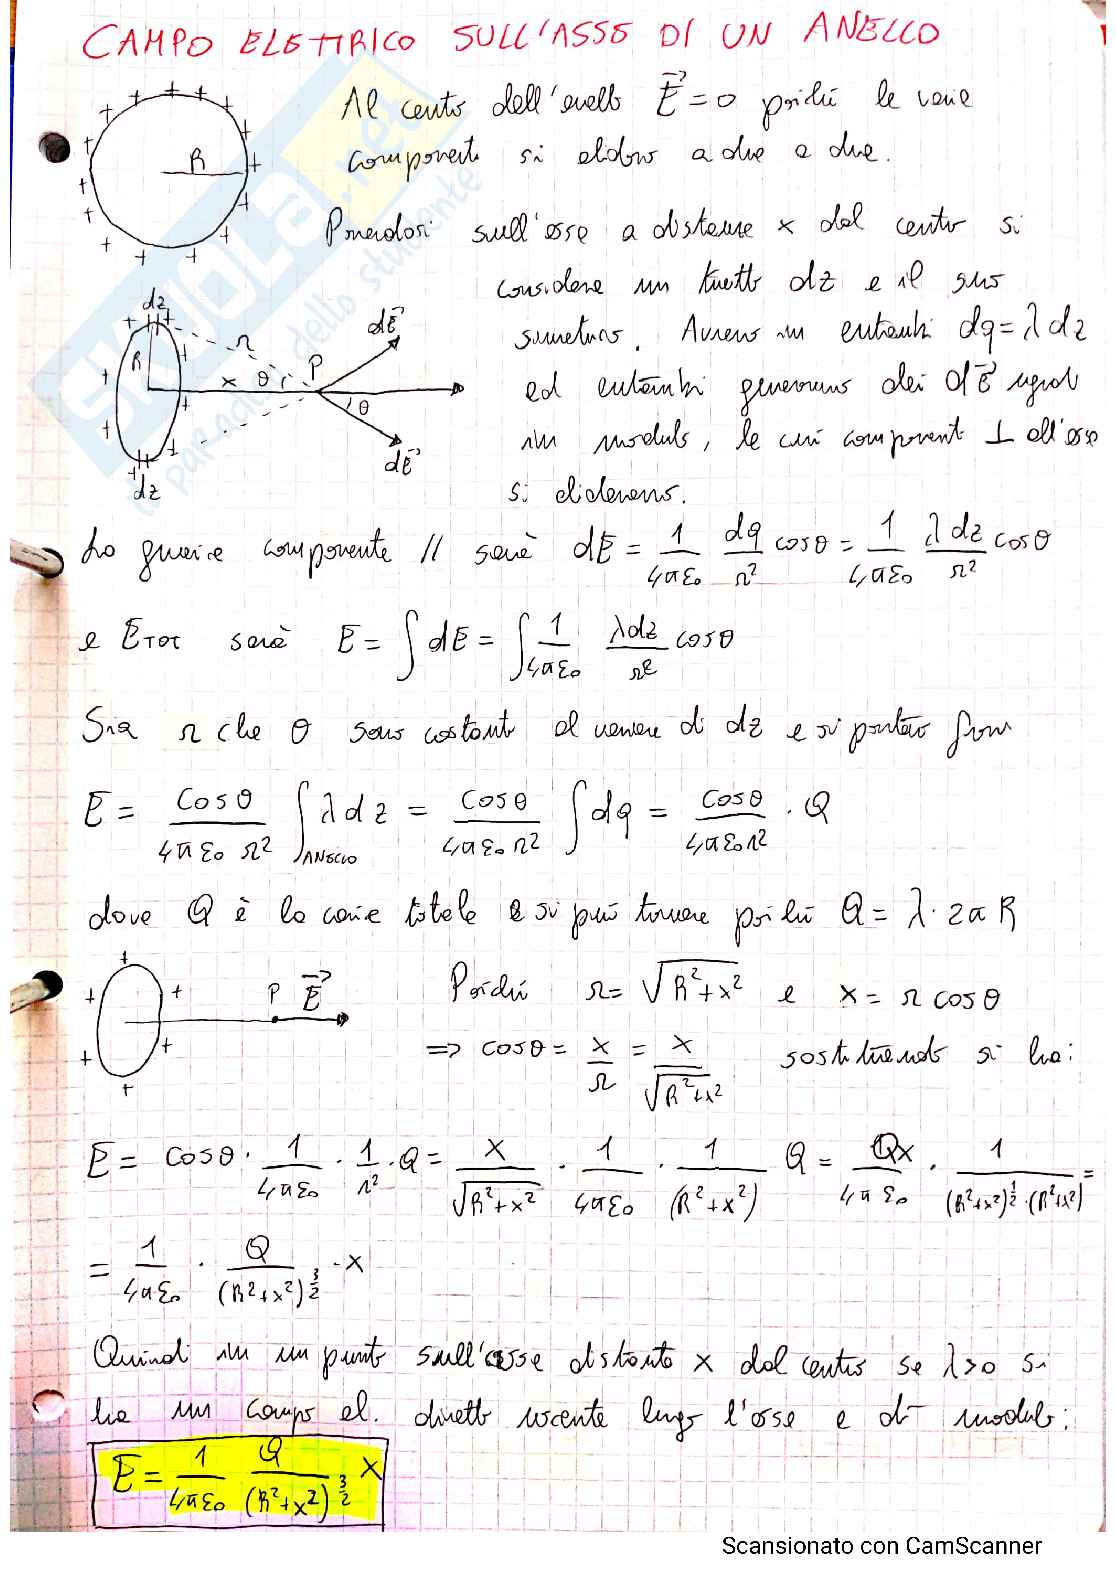 CAMPO ELETTRICO SULL'ASSE DI UN ANELLO
Al centro dell'anello E⃗ = 0 poiché le varie
componenti si elidono a due a due.
R
Ponendosi sull'asse a distanza x dal centro si
considera un tratto dz e il suo
simmetrico. Avremo in entrambi dq = λ dz
ed entrambi genereranno dei dE⃗ uguali
in modulo, le cui componenti ⊥ all'asse
si elideranno.
dz
R
r
x
θ
P
dE⃗
θ
dE⃗
dz
SKUOLA.net
il paradiso dello studente
La generica componente // sarà dE = 1/4πε₀ dq/r² cosθ = 1/4πε₀ λdz/r² cosθ
e ETOT sarà E = ∫dE = ∫ 1/4πε₀ λdz/r² cosθ
Sia r che θ sono costanti al variare di dz e si portano fuori
E = cosθ/4πε₀ r² ∫ANELLO λ dz = cosθ/4πε₀ r² ∫dq = cosθ/4πε₀ r² · Q
dove Q è la carica totale e si può trovare poiché Q = λ · 2πR
P E⃗
Poiché r = √R²+x² e x = r cosθ
=> cosθ = x/r = x/√R²+x² sostituendo si ha:
E = cosθ · 1/4πε₀ · 1/r² · Q = x/√R²+x² · 1/4πε₀ · 1/(R²+x²) Q = Qx/4πε₀ · 1/(R²+x²)^½ · (R²+x²) =
= 1/4πε₀ · Q/(R²+x²)^3/2 · x
Quindi in un punto sull'asse distante x dal centro se λ>0 si
ha un campo el. diretto uscente lungo l'asse e di modulo:
E = 1/4πε₀ Q/(R²+x²)^3/2 x
Scansionato con CamScanner